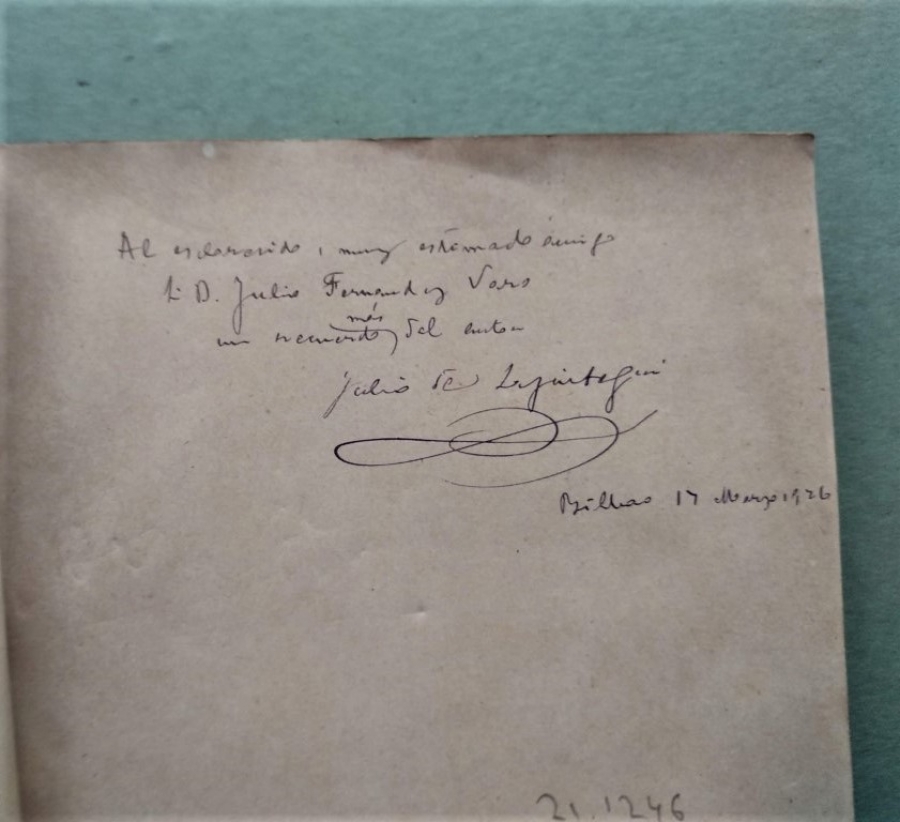 Al esclarecido i muy estimado amigo
D. Julio Fernandez
más
un recuerdo del autor
Julio de Lazurtegui
Bilbao 17 Marzo 1926
21.1246